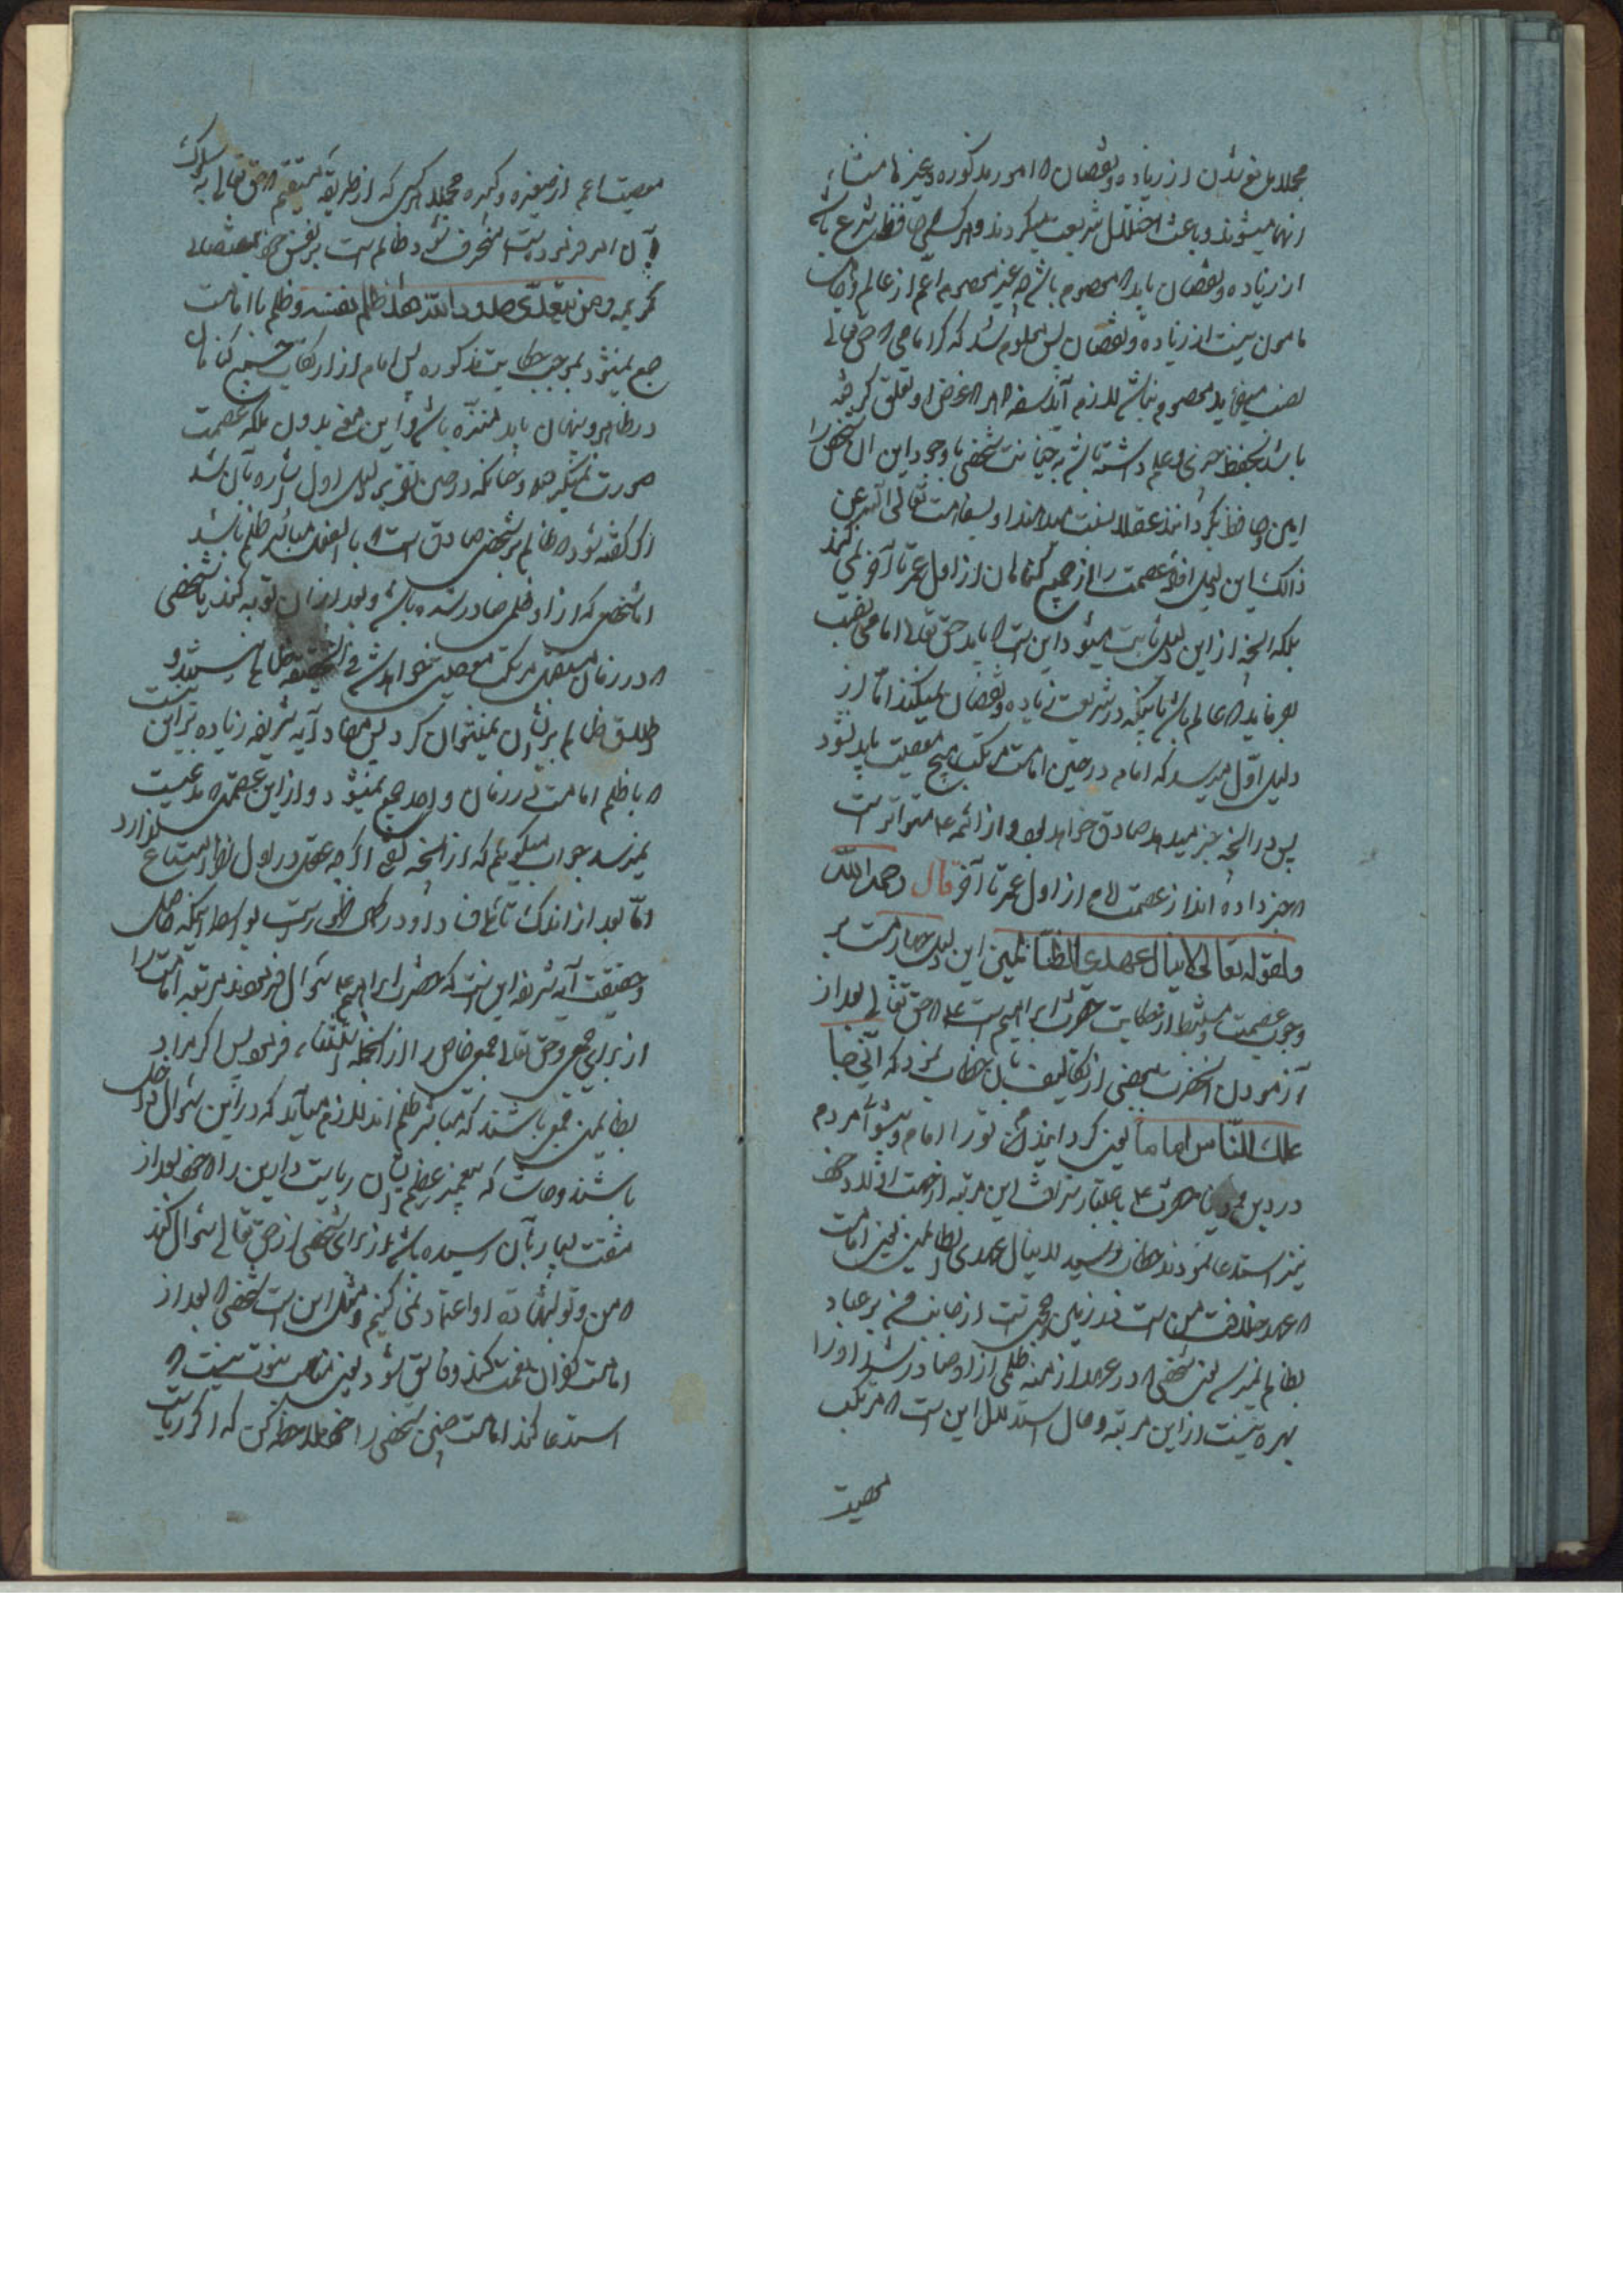 مجلدا مانع شدن از زیاده و نقصان که امور مذکوره و غیرها منشاء
آنها میشوند و باعث اختلال شریعت میگردند و هر که حافظ شرع باشد
از زیاده و نقصان باید که معصوم باشد چه غیر معصوم اعم از عالم و جاهل
مامون نیست از زیاده و نقصان پس معلوم شد که اگر امامی که حق تعالی
نصب میفرماید معصوم نباشد لازم آید سفه هر که غرض او تعلق گرفته
باشد بحفظ چیزی و علم داشته باشد به خیانت شخصی با وجود این آن شخص را
امین و حافظ بگرداند عقلا نسبت میدهند او را بسفاهت تعالی الله عن
ذالک این دلیل افاده عصمت را از جمیع گناهان از اول عمر تا آخر نمی‌کند
بلکه آنچه از این دلیل ثابت میشود این است که باید حق تعالی امامی نصب
بفرماید که عالم باشد باینکه در شریعت زیاده و نقصان نمیکند اما از
دلیل اول میرسد که امام در حین امامت مرتکب هیچ معصیت باید نشود
پس در آنچه خبر میدهد صادق خواهد بود و از ائمه ع متواتر است
که خبر داده‌اند از عصمت امام از اول عمر تا آخر قال رحمه الله
و لقوله تعالی لا ینال عهدی الظالمین این دلیل
وجوب عصمت مستنبط از حکایت حضرت ابراهیم است ع که حق تعالی بعد از
آزمودن آنحضرت ببعضی از تکالیف بآن خطاب نمود که انی جا
علک للناس اماما یعنی گرداننده‌ام تو را امام و پیشوا مردم
در دین حضرت ع باعتبار شرافت این مرتبه از جهت اولاد خود
نیز استدعا نمودند خطاب رسید لا ینال عهدی الظالمین یعنی امامت
که عهد و خلافت من است در زمین و حجت است از جانب من بر عباد
بظالم نمیرسد یعنی شخصی که در عهد از ازمنه ظلمی از او صادر شد او را
بهره نیست از این مرتبه و حال استدلال این است که مرتکب
معصیت
معصیت اعم از صغیره و کبیره مجملا هر کس که از طریقه مستقیم که حق تعالی به سلوک
آن امر فرموده است منحرف شود ظالم است بر نفس خود بمقتضای
کریمه و من یتعد حدود الله فقد ظلم نفسه و ظلم با امامت
جمع نمیشود بموجب حکایت مذکوره پس امام از ارتکاب جمیع گناهان
در ظاهر و پنهان باید منزه باشد و این معنی بدون ملکه عصمت
صورت نمیگیرد چنانکه در حین تقریر دلیل اول اشاره بآن شد
اگر گفته شود که ظالم بر شخصی صادق است که بالفعل مباشر ظلم باشد
اما شخصی که از او ظلمی صادر شده باشد و بعد از آن توبه کند یا شخصی
که در زمان مستقبل مرتکب معصیتی خواهد شد فی الحقیقه ظالم نیستند و
اطلاق ظالم بر ایشان نمیتوان کرد پس مفاد آیه شریفه زیاده بر این نیست
که با ظلم امامت در زمان واحد جمع نمیشود و از این عصمتی که مدعیست
نمیرسد جواب میگوئیم که از آنچه گفتی اگر چه عقل در اول نظر
اما بعد از اندک تأملی
و حقیقت آیه شریفه این است که حضرت ابراهیم ع سؤال فرمودند مرتبه امامت را
از برای جمعی و حق تعالی جمعی خاص را از آنجمله استثناء فرمود پس اگر مراد
بظالمین جمعی باشند که مباشر ظلم‌اند لازم میآید که در این سؤال داخل
باشند و حاشا که پیغمبر عظیم الشان ریاست دارین را که خود بعد از
مشقت بسیار بآن رسیده باشد از برای شخصی از حق تعالی سؤال کند
که من و تو بشهادت او اعتماد نمی‌کنیم و مثل این است شخصی که بعد از
امامت کفران نعمت کند و فاسق شود یعنی مناسب نبوت نیست که
استدعا کند امامت چنین شخصی را خود ملاحظه کن که اگر ریاست